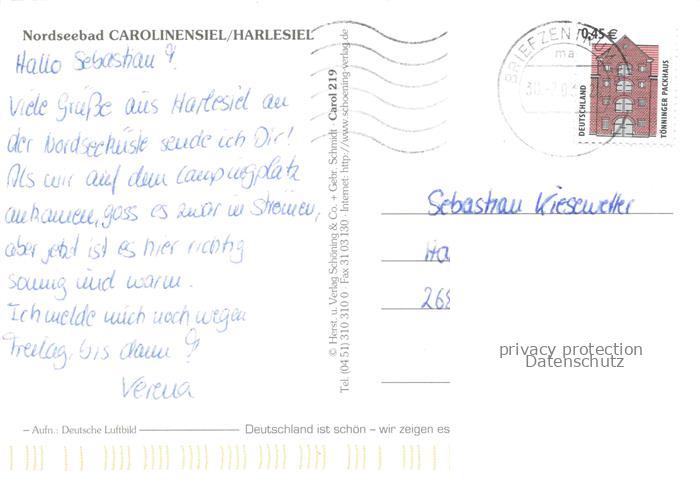 Nordseebad CAROLINENSIEL/HARLESIEL
Hallo Sebastian!
Viele Grüße aus Harlesiel an
der Nordseeküste sende ich Dir!
Als wir auf dem Campingplatz
ankamen, goss es zwar in Strömen,
aber jetzt ist es hier richtig
sonnig und warm.
Ich melde mich noch wegen
Freitag, bis dann!
Verena
– Aufn.: Deutsche Luftbild
Deutschland ist schön – wir zeigen es
© Herst. u. Verlag Schöning & Co. + Gebr. Schmidt · Carol 219
Tel. (04 51) 310 310 0 · Fax 31 03 130 · Internet: http://www.schoening-verlag.de
BRIEFZENTRUM
ma
0,45 €
DEUTSCHLAND
TÖNNINGER PACKHAUS
Sebastian Kiesewetter
Ha
269
privacy protection
Datenschutz